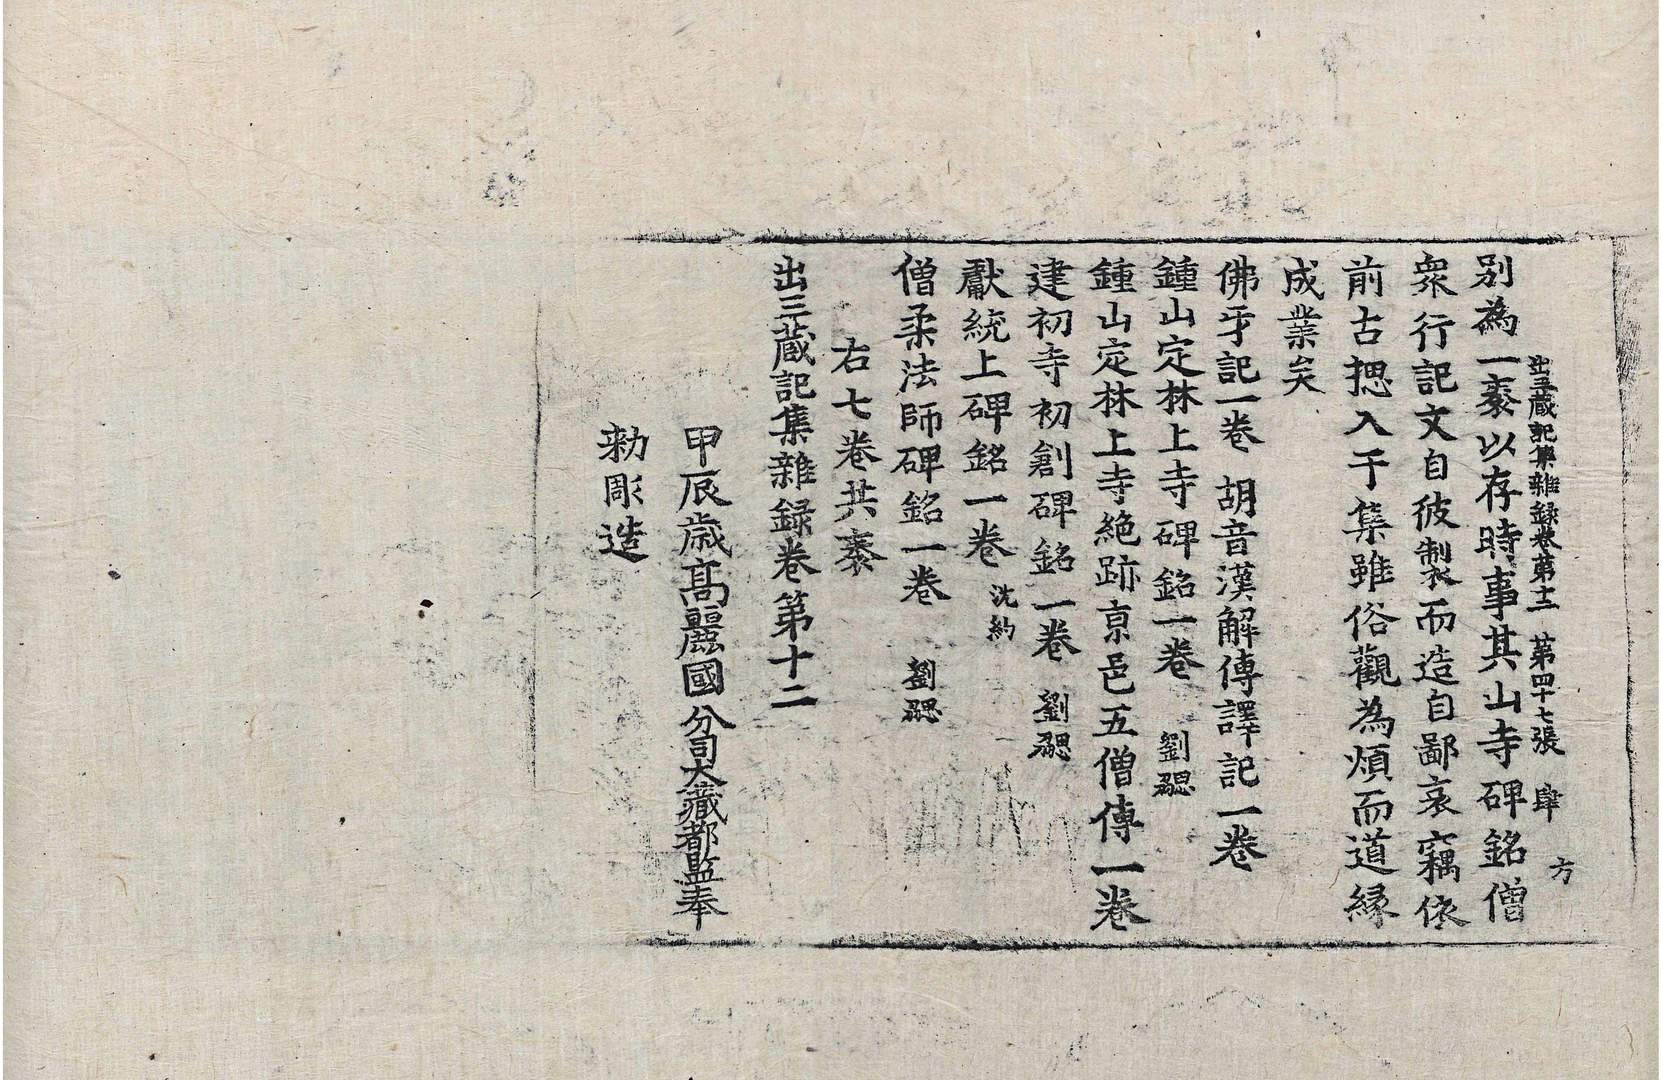 出三蔵記集雜録卷第十二 第四十七張 肆 方
別為一袠以存時事其山寺碑銘僧
衆行記文自彼製而造自鄙哀竊依
前古揔入于集雖俗觀為煩而道緣
成業矣
佛牙記一卷 胡音漢解傳譯記一卷
鍾山定林上寺碑銘一卷 劉勰
鍾山定林上寺絶跡京邑五僧傳一卷
建初寺初創碑銘一卷 劉勰
獻統上碑銘一卷 沈約
僧柔法師碑銘一卷 劉勰
右七卷共袠
出三蔵記集雜録卷第十二
甲辰歳髙麗國分司大藏都監奉
勑彫造